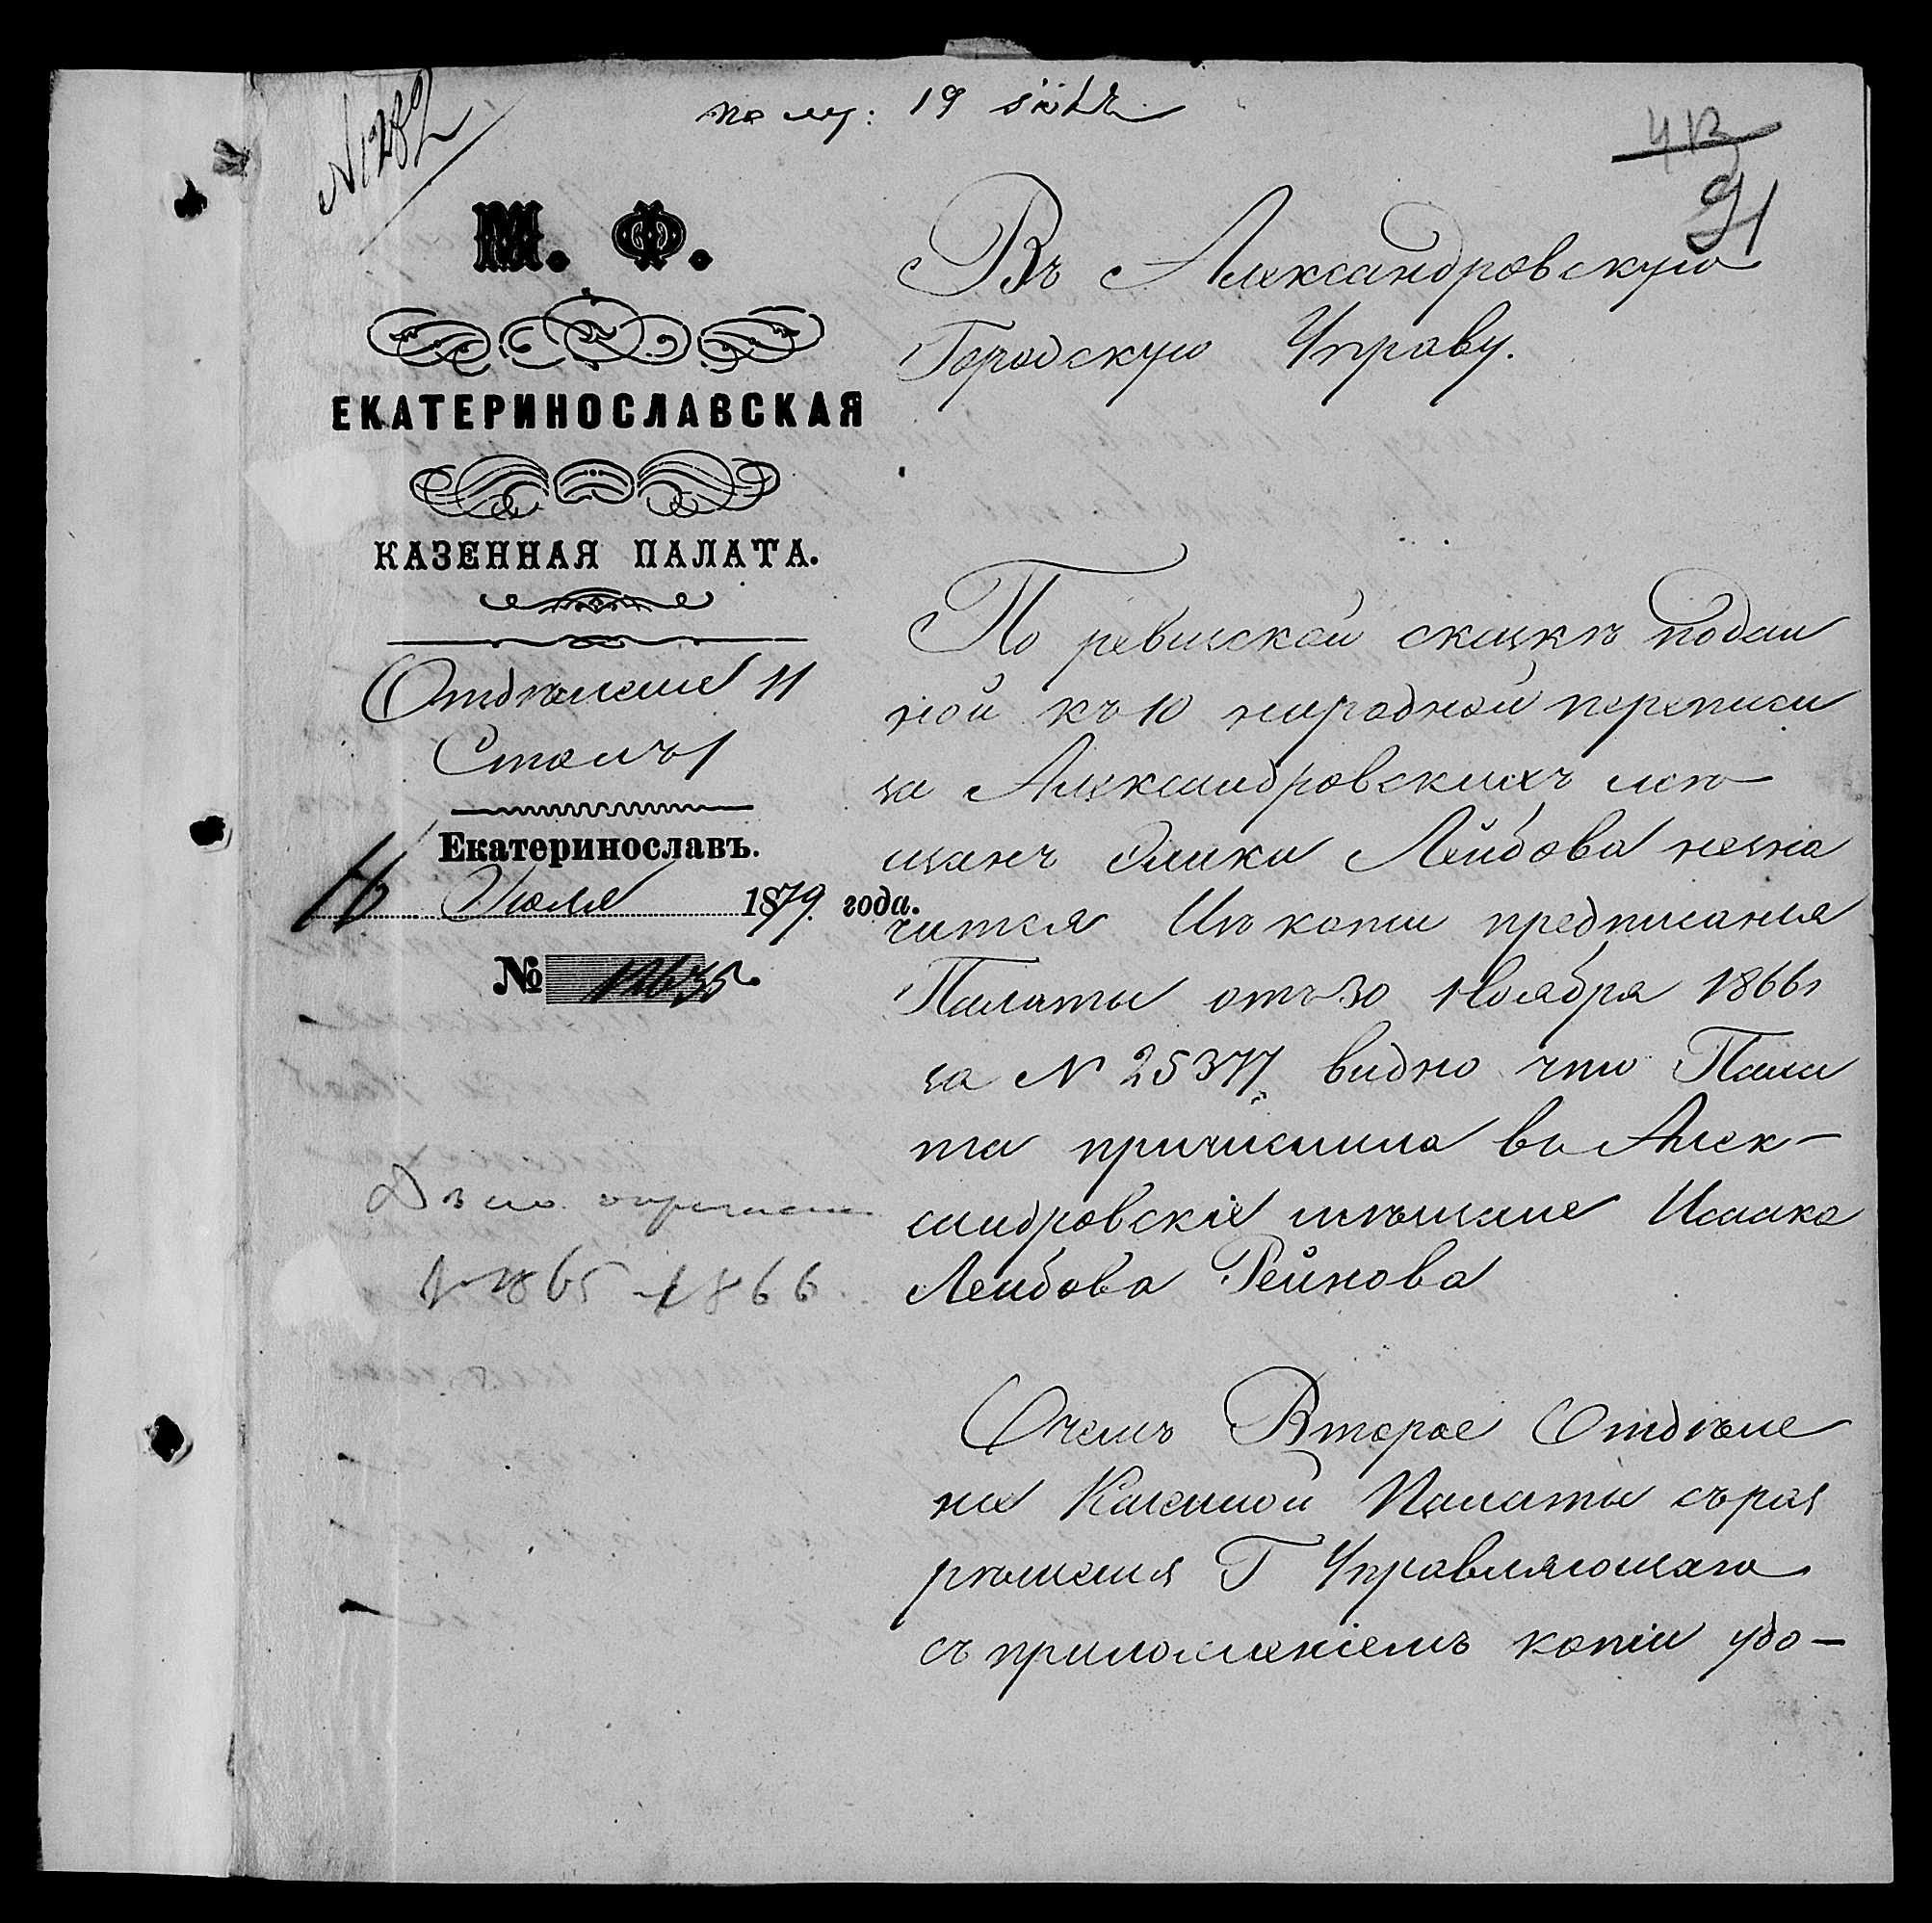 № 1282
пол: 19 іюля
413
91
М. Ф.
ЕКАТЕРИНОСЛАВСКАЯ
КАЗЕННАЯ ПАЛАТА.
Отдѣленіе II
Столъ 1
Екатеринославъ.
16 Іюля 1879 года.
№ 12635
Въ Александровскую
Городскую Управу.
По ревизской сказкѣ подан
ной къ 10 народной переписи
за Александровскихъ мѣ-
щанъ Лейбова незна
чится Изъ копіи предписанія
Палаты отъ 30 Ноября 1866 г
за № 25377, видно что Пала
та причислила въ Алек-
сандровскіе мѣщане Исаака
Лейбова Рейнова
О чемъ Второе Отдѣле
ніе Казенной Палаты съ раз
рѣшенія Г Управляющаго
съ приложеніемъ копіи удо-
Дѣло
1865 - 1866